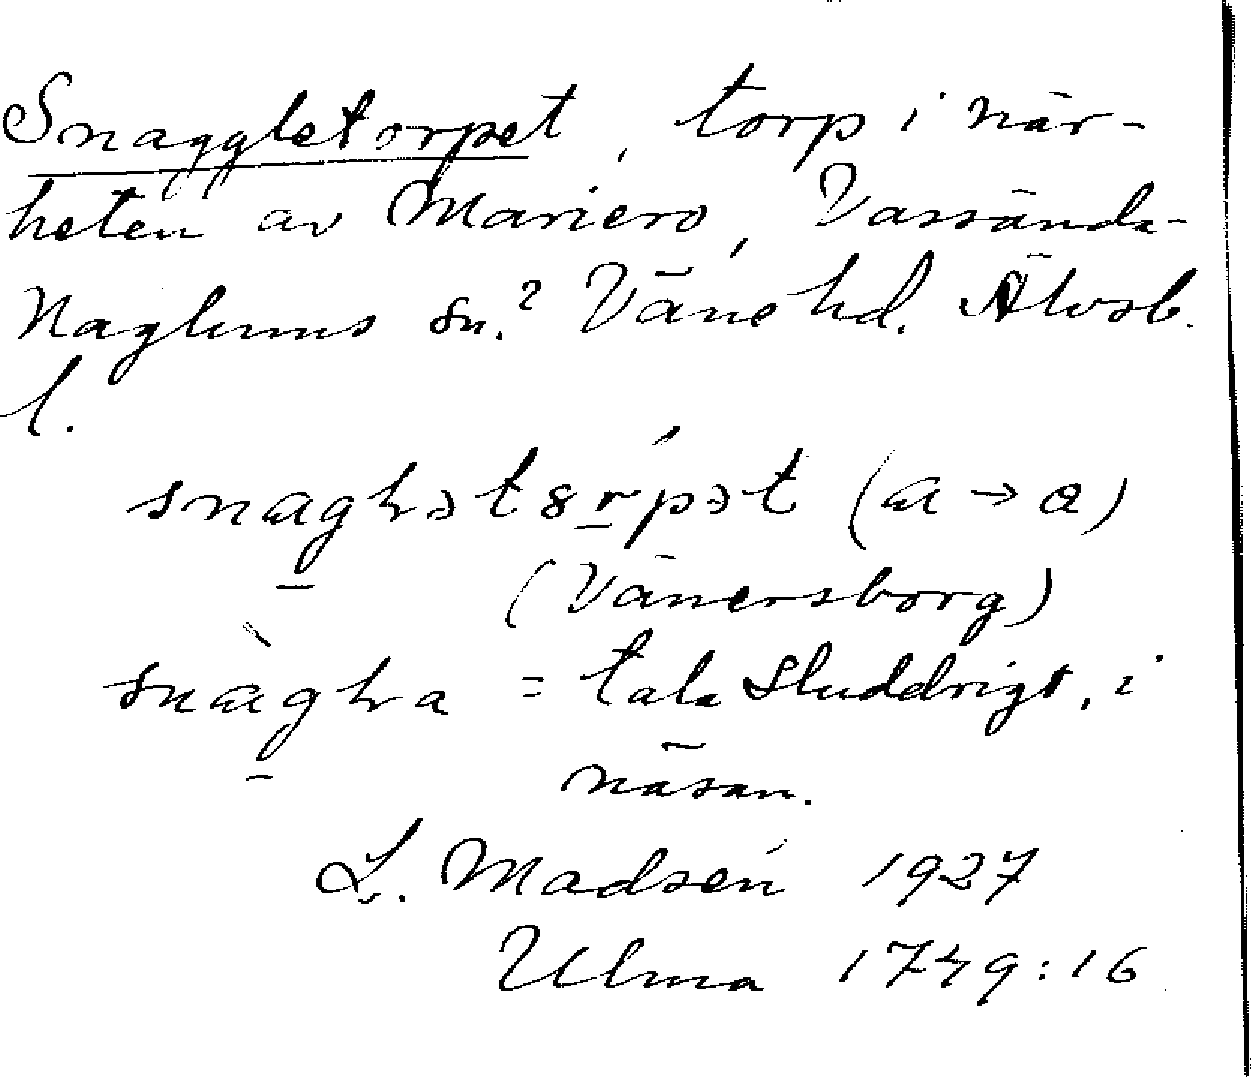 Snaggletorpet, torp i när-
heten av Mariero, Vassända-
Naglums sn.? Väne hd. Älvsb.
l.
snaghətsrpət (a → a)
(Vänersborg)
snàgha = tala sluddrigt, i
näsan.
L. Madsén 1927
Ulma 1749:16